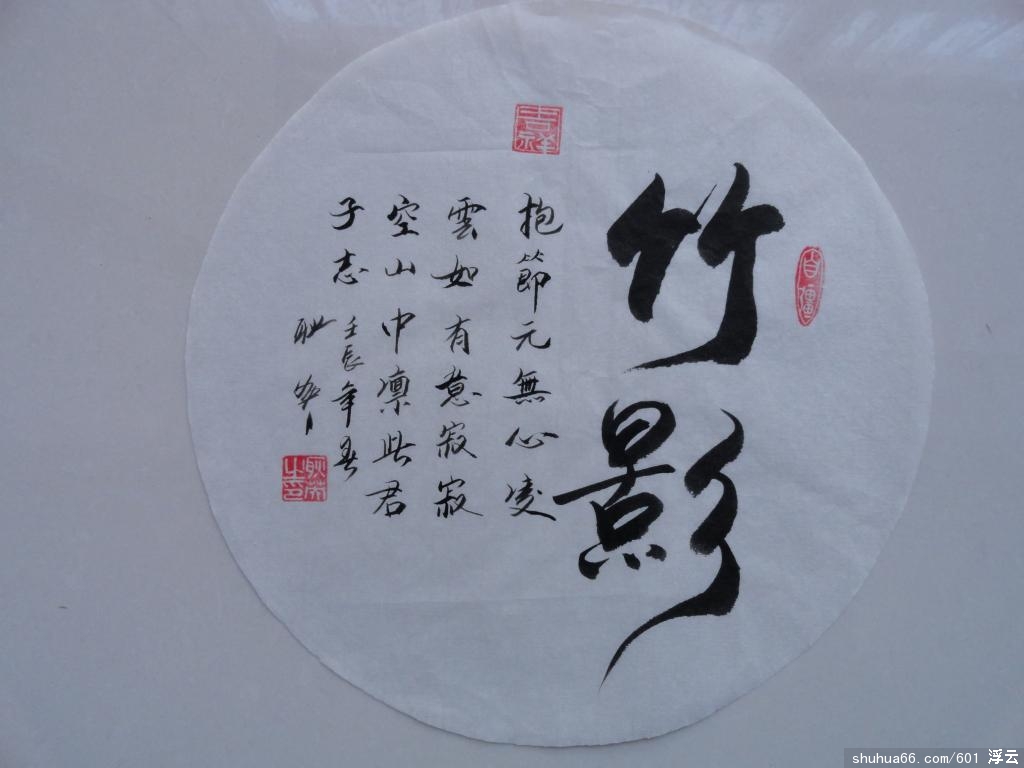 竹影
抱節元無心凌
雲如有意寂寂
空山中凛此君
子志
壬辰年春
shuhua66.com/601 浮云